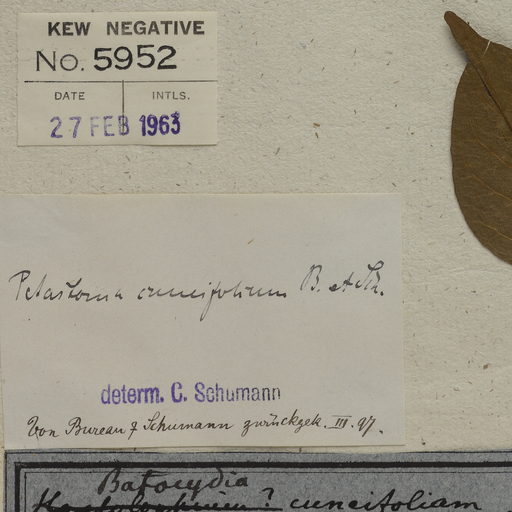 KEW NEGATIVE
No. 5952
DATE INTLS.
27 FEB 1963
Petastoma cuneifolium B. et Sch.
determ. C. Schumann
Von Bureau & Schumann zurückgek. III. 97.
Batocydia
? cuneifoliam